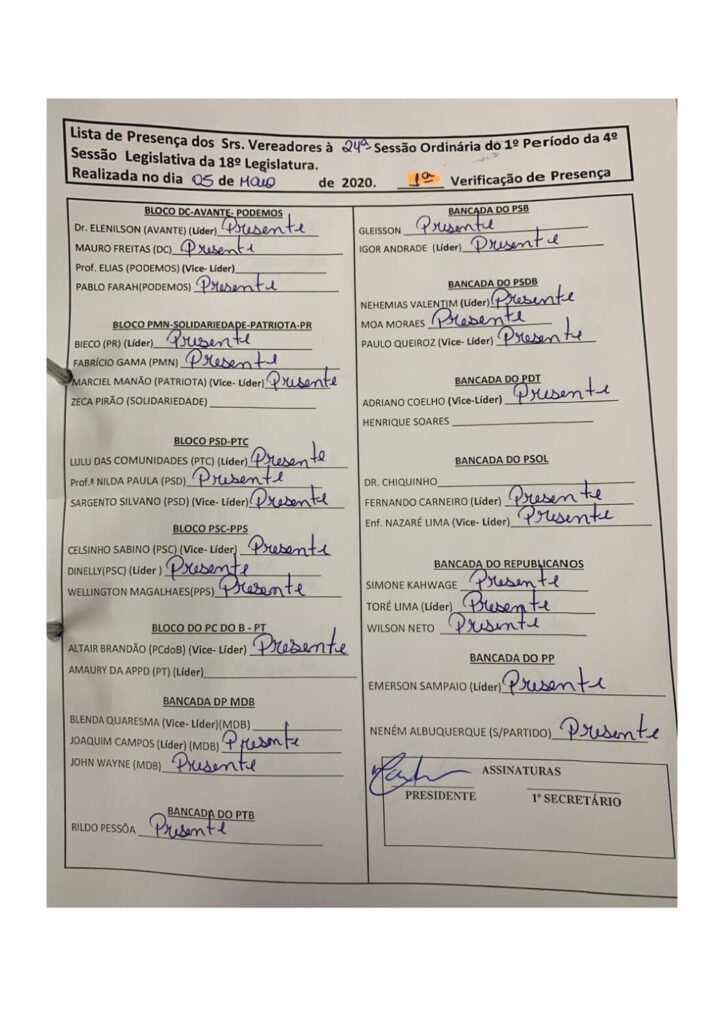 Lista de Presença dos Srs. Vereadores à 24ª Sessão Ordinária do 1º Período da 4º
Sessão Legislativa da 18º Legislatura.
Realizada no dia 05 de Maio de 2020. 1ª Verificação de Presença
BLOCO DC-AVANTE- PODEMOS
Dr. ELENILSON (AVANTE) (Líder) Presente
MAURO FREITAS (DC) Presente
Prof. ELIAS (PODEMOS) (Vice- Líder)
PABLO FARAH(PODEMOS) Presente
BLOCO PMN-SOLIDARIEDADE-PATRIOTA-PR
BIECO (PR) (Líder) Presente
FABRÍCIO GAMA (PMN) Presente
MARCIEL MANÃO (PATRIOTA) (Vice- Líder) Presente
ZECA PIRÃO (SOLIDARIEDADE)
BLOCO PSD-PTC
LULU DAS COMUNIDADES (PTC) (Líder) Presente
Prof.ª NILDA PAULA (PSD) Presente
SARGENTO SILVANO (PSD) (Vice- Líder) Presente
BLOCO PSC-PPS
CELSINHO SABINO (PSC) (Vice- Líder) Presente
DINELLY(PSC) (Líder ) Presente
WELLINGTON MAGALHAES(PPS) Presente
BLOCO DO PC DO B - PT
ALTAIR BRANDÃO (PCdoB) (Vice- Líder) Presente
AMAURY DA APPD (PT) (Líder)
BANCADA DP MDB
BLENDA QUARESMA (Vice- Líder)(MDB)
JOAQUIM CAMPOS (Líder) (MDB) Presente
JOHN WAYNE (MDB) Presente
BANCADA DO PTB
RILDO PESSÔA Presente
BANCADA DO PSB
GLEISSON Presente
IGOR ANDRADE (Líder) Presente
BANCADA DO PSDB
NEHEMIAS VALENTIM (Líder) Presente
MOA MORAES Presente
PAULO QUEIROZ (Vice- Líder) Presente
BANCADA DO PDT
ADRIANO COELHO (Vice-Líder) Presente
HENRIQUE SOARES
BANCADA DO PSOL
DR. CHIQUINHO
FERNANDO CARNEIRO (Líder) Presente
Enf. NAZARÉ LIMA (Vice- Líder) Presente
BANCADA DO REPUBLICANOS
SIMONE KAHWAGE Presente
TORÉ LIMA (Líder) Presente
WILSON NETO Presente
BANCADA DO PP
EMERSON SAMPAIO (Líder) Presente
NENÉM ALBUQUERQUE (S/PARTIDO) Presente
ASSINATURAS
PRESIDENTE
1º SECRETÁRIO